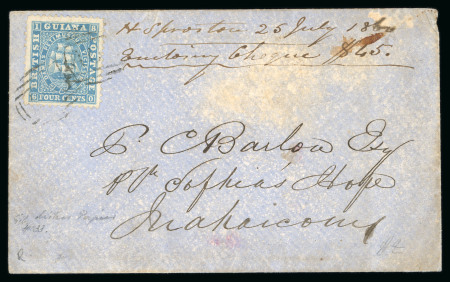 BRITISH GUIANA POSTAGE
FOUR CENTS
1 8 6 0
H Sproston 25 July 18
Enclosing Cheque $45.
P. C Barlow Esq
Pln Sophia's Hope
Mahaicony